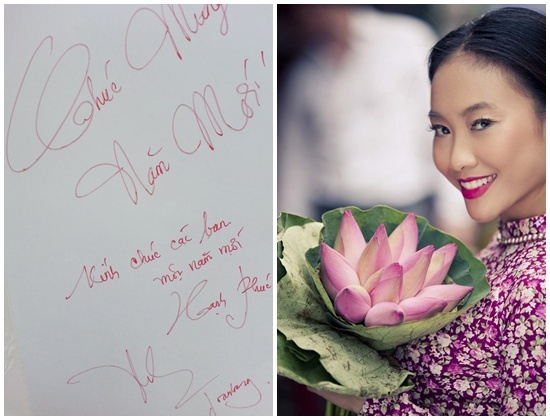 Chúc Mừng
Năm Mới!
Kính chúc các bạn
một năm mới
Hạnh Phúc